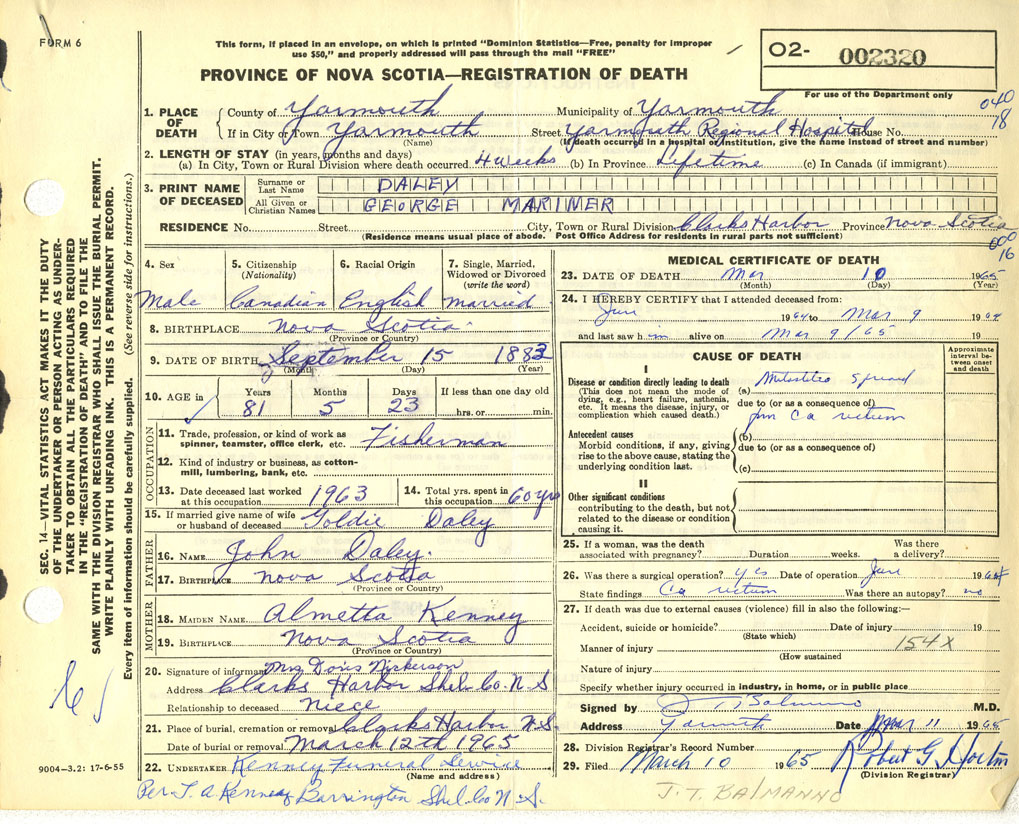 FORM 6
This form, if placed in an envelope, on which is printed "Dominion Statistics—Free, penalty for improper
use $50," and properly addressed will pass through the mail "FREE"
O2- 002320
For use of the Department only
PROVINCE OF NOVA SCOTIA—REGISTRATION OF DEATH
040
18
1. PLACE OF DEATH County of Yarmouth Municipality of Yarmouth
If in City or Town Yarmouth Street Yarmouth Regional Hospital House No.
(Name) (If death occurred in a hospital or institution, give the name instead of street and number)
2. LENGTH OF STAY (in years, months and days)
(a) In City, Town or Rural Division where death occurred 4 weeks (b) In Province Lifetime (c) In Canada (if immigrant)
3. PRINT NAME OF DECEASED Surname or Last Name DALEY
All Given or Christian Names GEORGE MARINER
RESIDENCE No. Street City, Town or Rural Division Clarks Harbor Province Nova Scotia
(Residence means usual place of abode. Post Office Address for residents in rural parts not sufficient)
000
16
SEC. 14—VITAL STATISTICS ACT MAKES IT THE DUTY
OF THE UNDERTAKER OR PERSON ACTING AS UNDER-
TAKER TO OBTAIN ALL THE PARTICULARS REQUIRED
IN THE "REGISTRATION OF DEATH" AND TO FILE THE
SAME WITH THE DIVISION REGISTRAR WHO SHALL ISSUE THE BURIAL PERMIT.
WRITE PLAINLY WITH UNFADING INK. THIS IS A PERMANENT RECORD.
Every item of information should be carefully supplied. (See reverse side for instructions.)
4. Sex 5. Citizenship 6. Racial Origin 7. Single, Married,
(Nationality) Widowed or Divorced
(write the word)
Male Canadian English married
8. BIRTHPLACE Nova Scotia
(Province or Country)
9. DATE OF BIRTH September 15 1883
(Month) (Day) (Year)
10. AGE in Years Months Days If less than one day old
81 5 23 hrs. or min.
OCCUPATION
11. Trade, profession, or kind of work as
spinner, teamster, office clerk, etc. Fisherman
12. Kind of industry or business, as cotton-
mill, lumbering, bank, etc.
13. Date deceased last worked
at this occupation 1963
14. Total yrs. spent in
this occupation 60 yrs
15. If married give name of wife
or husband of deceased Goldie Daley
FATHER
16. NAME John Daley.
17. BIRTHPLACE Nova Scotia
(Province or Country)
MOTHER
18. MAIDEN NAME Almetta Kenney
19. BIRTHPLACE Nova Scotia
(Province or Country)
20. Signature of informant Mrs Doris Nickerson
Address Clarks Harbor Shel. Co. N S
Relationship to deceased Niece
21. Place of burial, cremation or removal Clarks Harbor N.S.
Date of burial or removal March 12th 1965
22. UNDERTAKER Kenney Funeral Service
(Name and address)
Per. T. A Kenney Barrington Shel. Co N.S.
9004-3.2: 17-6-55
MEDICAL CERTIFICATE OF DEATH
23. DATE OF DEATH Mar 10 1965
(Month) (Day) (Year)
24. I HEREBY CERTIFY that I attended deceased from:
1964 to Mar 9 1964
and last saw him alive on Mar 9/65 19
CAUSE OF DEATH
Approximate interval between onset and death
I
Disease or condition directly leading to death
(This does not mean the mode of
dying, e.g., heart failure, asthenia,
etc. It means the disease, injury, or
complication which caused death.)
(a) spread
due to (or as a consequence of)
from Ca rectum
Antecedent causes
Morbid conditions, if any, giving
rise to the above cause, stating the
underlying condition last.
(b)
due to (or as a consequence of)
(c)
II
Other significant conditions
contributing to the death, but not
related to the disease or condition
causing it.
25. If a woman, was the death Was there
associated with pregnancy? Duration weeks. a delivery?
26. Was there a surgical operation? yes Date of operation 1964
State findings Ca rectum Was there an autopsy? no
27. If death was due to external causes (violence) fill in also the following:—
Accident, suicide or homicide? Date of injury 19
(State which)
Manner of injury 154X
(How sustained
Nature of injury
Specify whether injury occurred in industry, in home, or in public place
Signed by M.D.
Address Yarmouth Date Mar 11 1965
28. Division Registrar's Record Number
29. Filed March 10 1965 Robert G. Horton
(Division Registrar)
J. T. BALMANNO